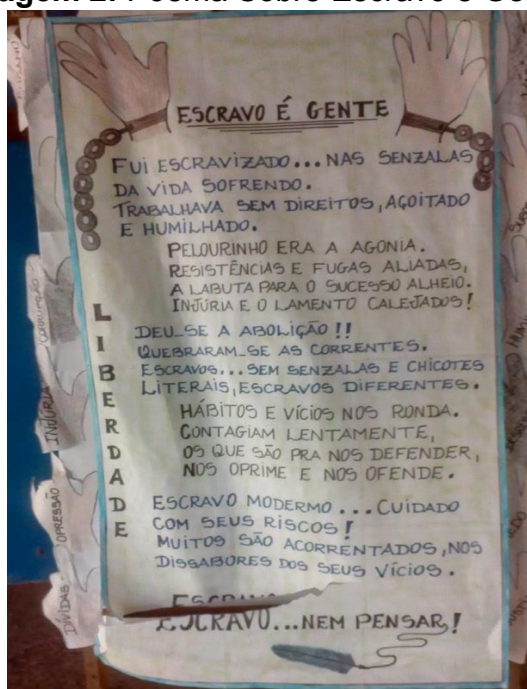 ESCRAVO É GENTE
FUI ESCRAVIZADO...NAS SENZALAS
DA VIDA SOFRENDO.
TRABALHAVA SEM DIREITOS, AÇOITADO
E HUMILHADO.
PELOURINHO ERA A AGONIA.
RESISTÊNCIAS E FUGAS ALIADAS,
A LABUTA PARA O SUCESSO ALHEIO.
INJÚRIA E O LAMENTO CALEJADOS!
DEU-SE A ABOLIÇÃO!!
QUEBRARAM-SE AS CORRENTES.
ESCRAVOS...SEM SENZALAS E CHICOTES
LITERAIS, ESCRAVOS DIFERENTES.
HÁBITOS E VÍCIOS NOS RONDA.
CONTAGIAM LENTAMENTE,
OS QUE SÃO PRA NOS DEFENDER,
NOS OPRIME E NOS OFENDE.
ESCRAVO MODERMO...CUIDADO
COM SEUS RISCOS!
MUITOS SÃO ACORRENTADOS, NOS
DISSABORES DOS SEUS VÍCIOS.
ESCRAVO...NEM PENSAR!
LIBERDADE
CORRUPÇÃO
INJÚRIA
OPRESSÃO
DÍVIDAS